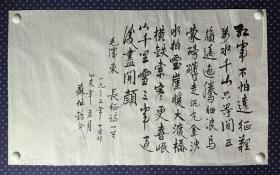 紅軍不怕遠征難
萬水千山只等閒五
嶺逶迤騰細浪烏
蒙磅礴走泥丸金沙
水拍雲崖暖大渡橋
橫鐵索寒更喜岷
山千里雪三軍過
後盡開顏
毛澤東 長征詩一首
一九三五年十月
乙未年五月